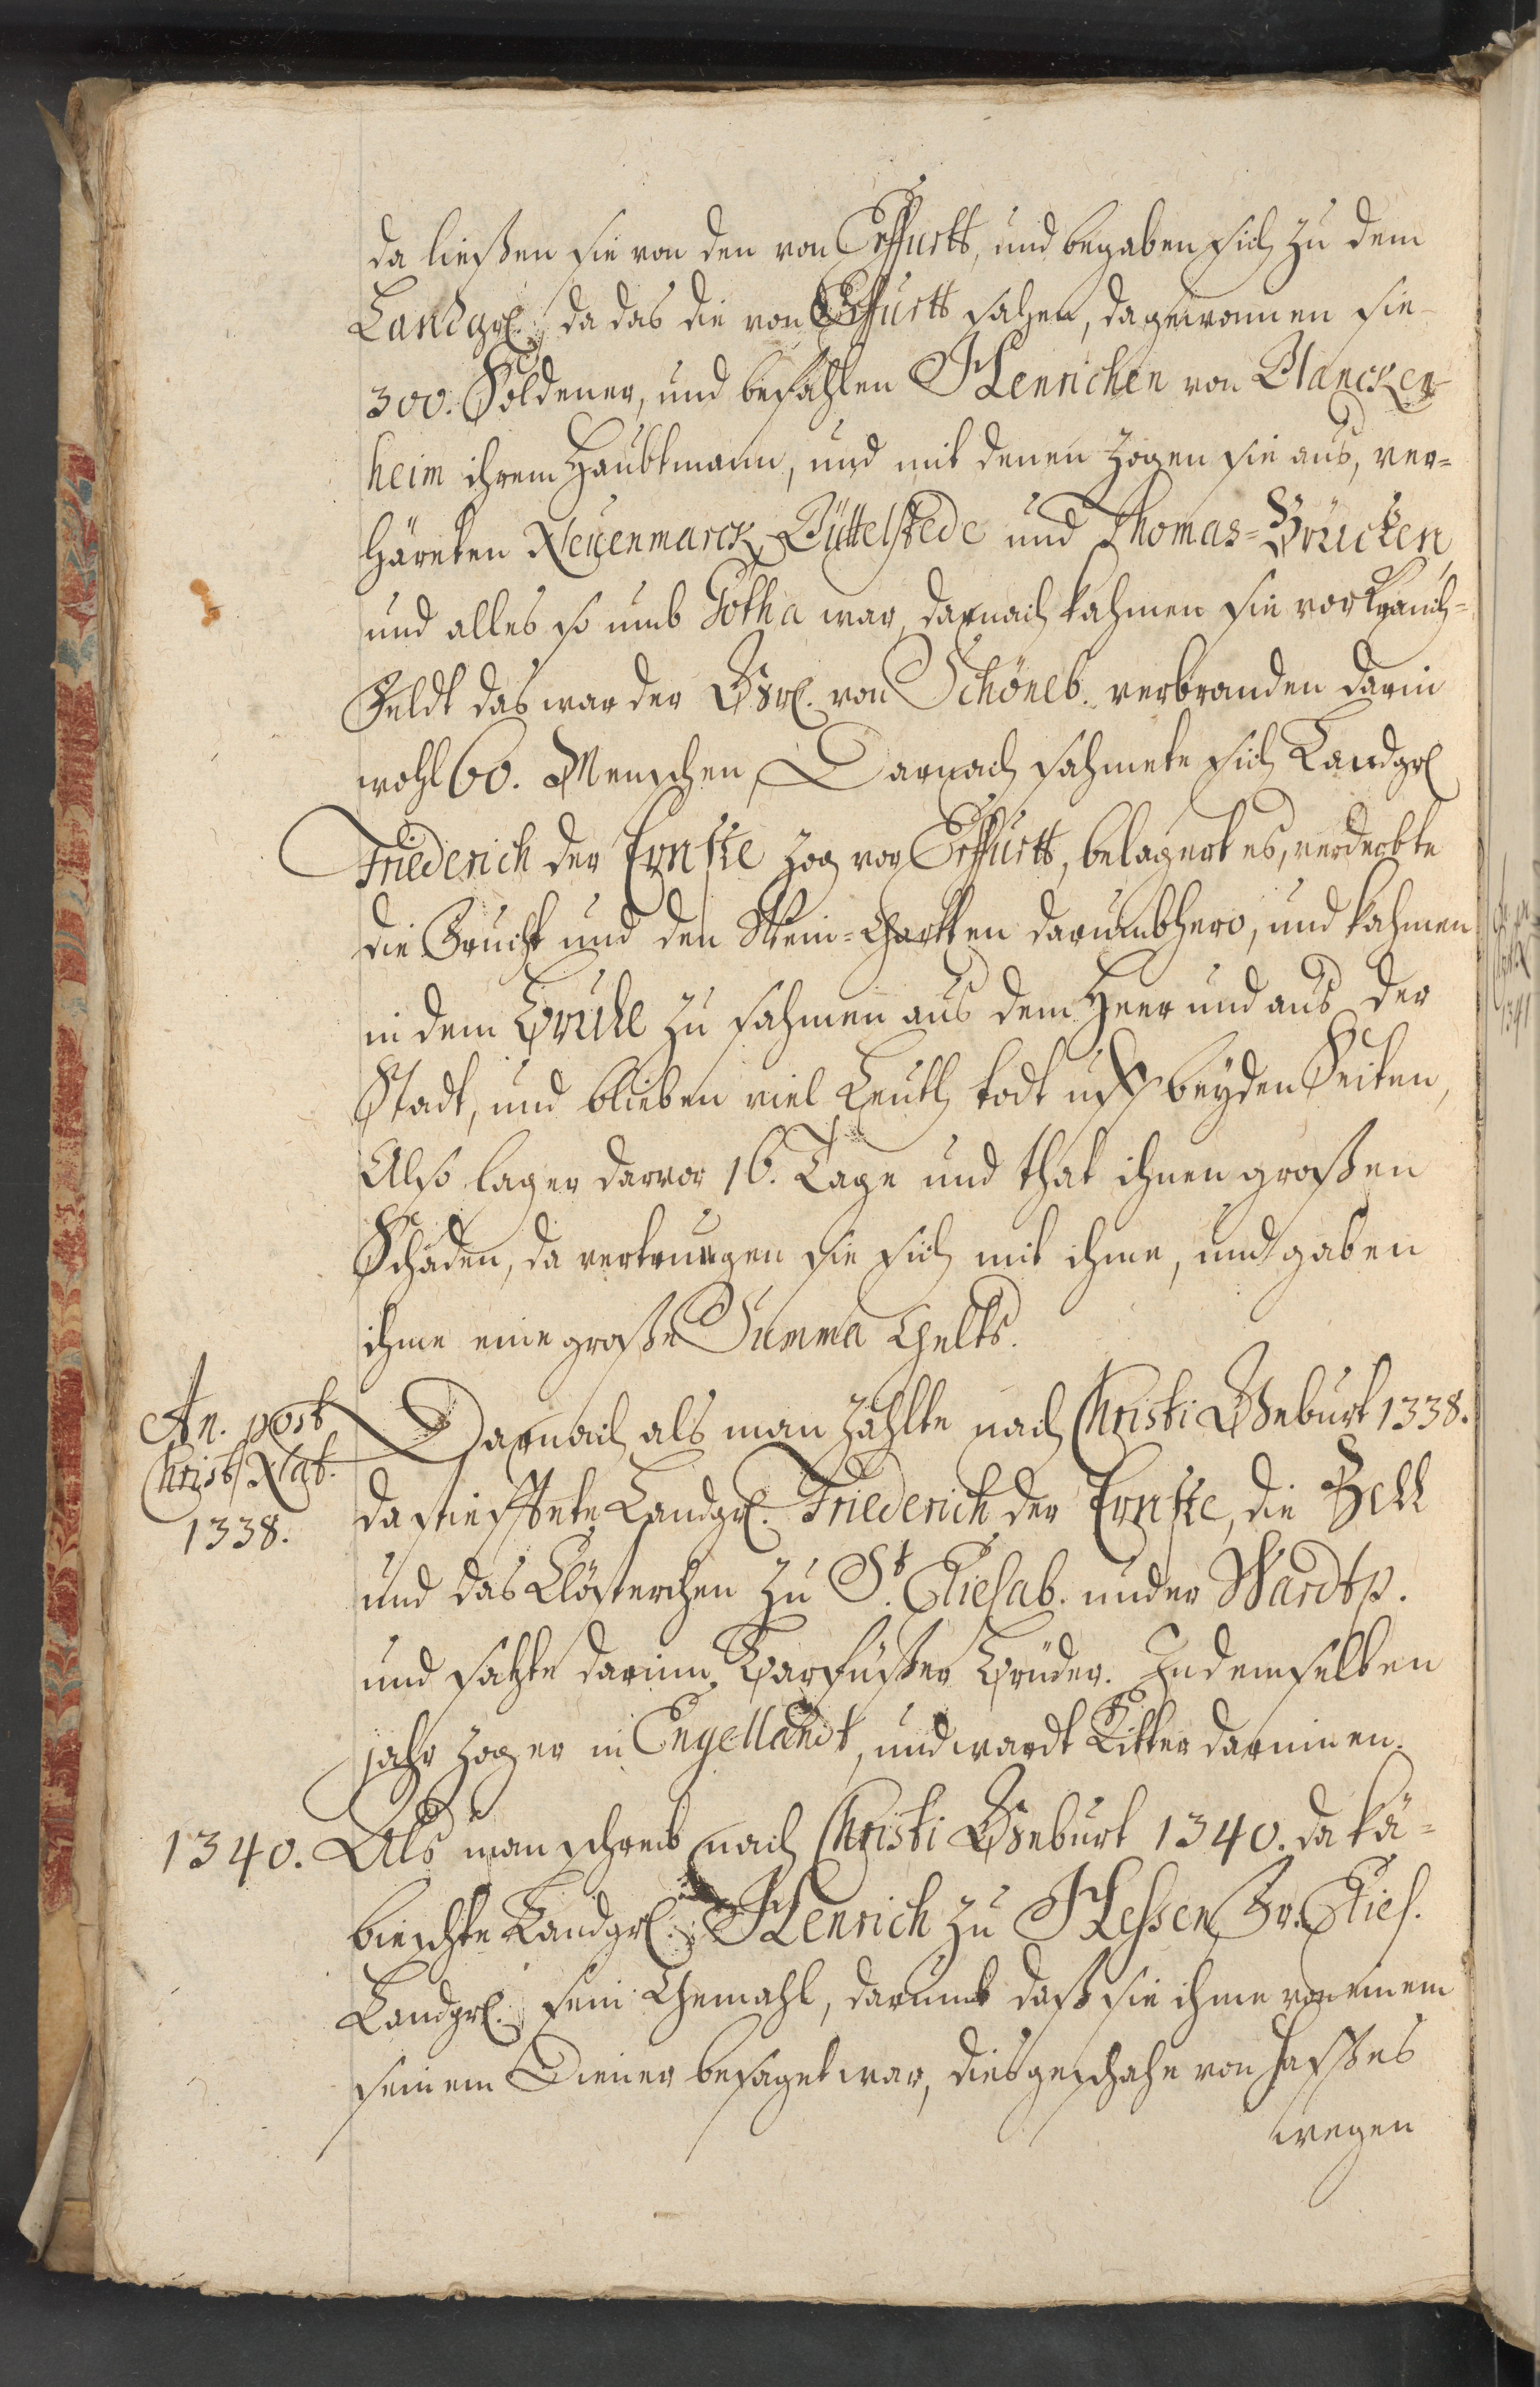 da ließen sie von den von Erffurtt, und begaben sich zu dem
Landgr. da das die von Erffurtt sahen, da gewonnen sie
300. Söldener, und befahlen Henrichen von Blancken
heim ihrem Haubtmann, und mit denen zogen sie aus, ver=
härеten Neuenmarck, Büttelstede und Thomas=Brücken,
und alles so umb Gotha war, darnach kahmen sie vor Kranich=
Feldt das war der Grf. von Schöneb. verbranden darin
wohl 60. Menschen, Darnach sahmete sich Landgr
Friederich der Ernste zog vor Erffurtt, belagert es, verderbte
die Frucht und den Wein=Gartten darumbhero, und kahmen
in dem Bruhl zu sahmen aus dem Heer und aus der
Stadt, und blieben viel Leuth todt uff beyden Seiten,
Also lag er darvor 16. Tage und that ihnen großen
Schaden, da vertrugen sie sich mit ihme, und gaben
ihme eine große Summa Gelts.
An. post
Christ. Nat.
1338.
Darnach als man zählte nach Christi Geburt 1338.
da stiefftete Landgr. Friederich der Ernste, die Zell
und das Clösterchen zu St. Eliesab. under Wardtp.
und satzte darinn Barfüßer Brüder. In demselben
jahr zog er in Engellandt, und wardt Ritter darinnen.
1340. Als man schreib nach Christi Geburt 1340. da kä=
biechte Landgr. Henrich zu Hessen Fr. Elies.
Landgr. sein Gemahl, darumb daß sie ihme von einem
seinem Diener besaget war, dies geschahe von Hasses
wegen